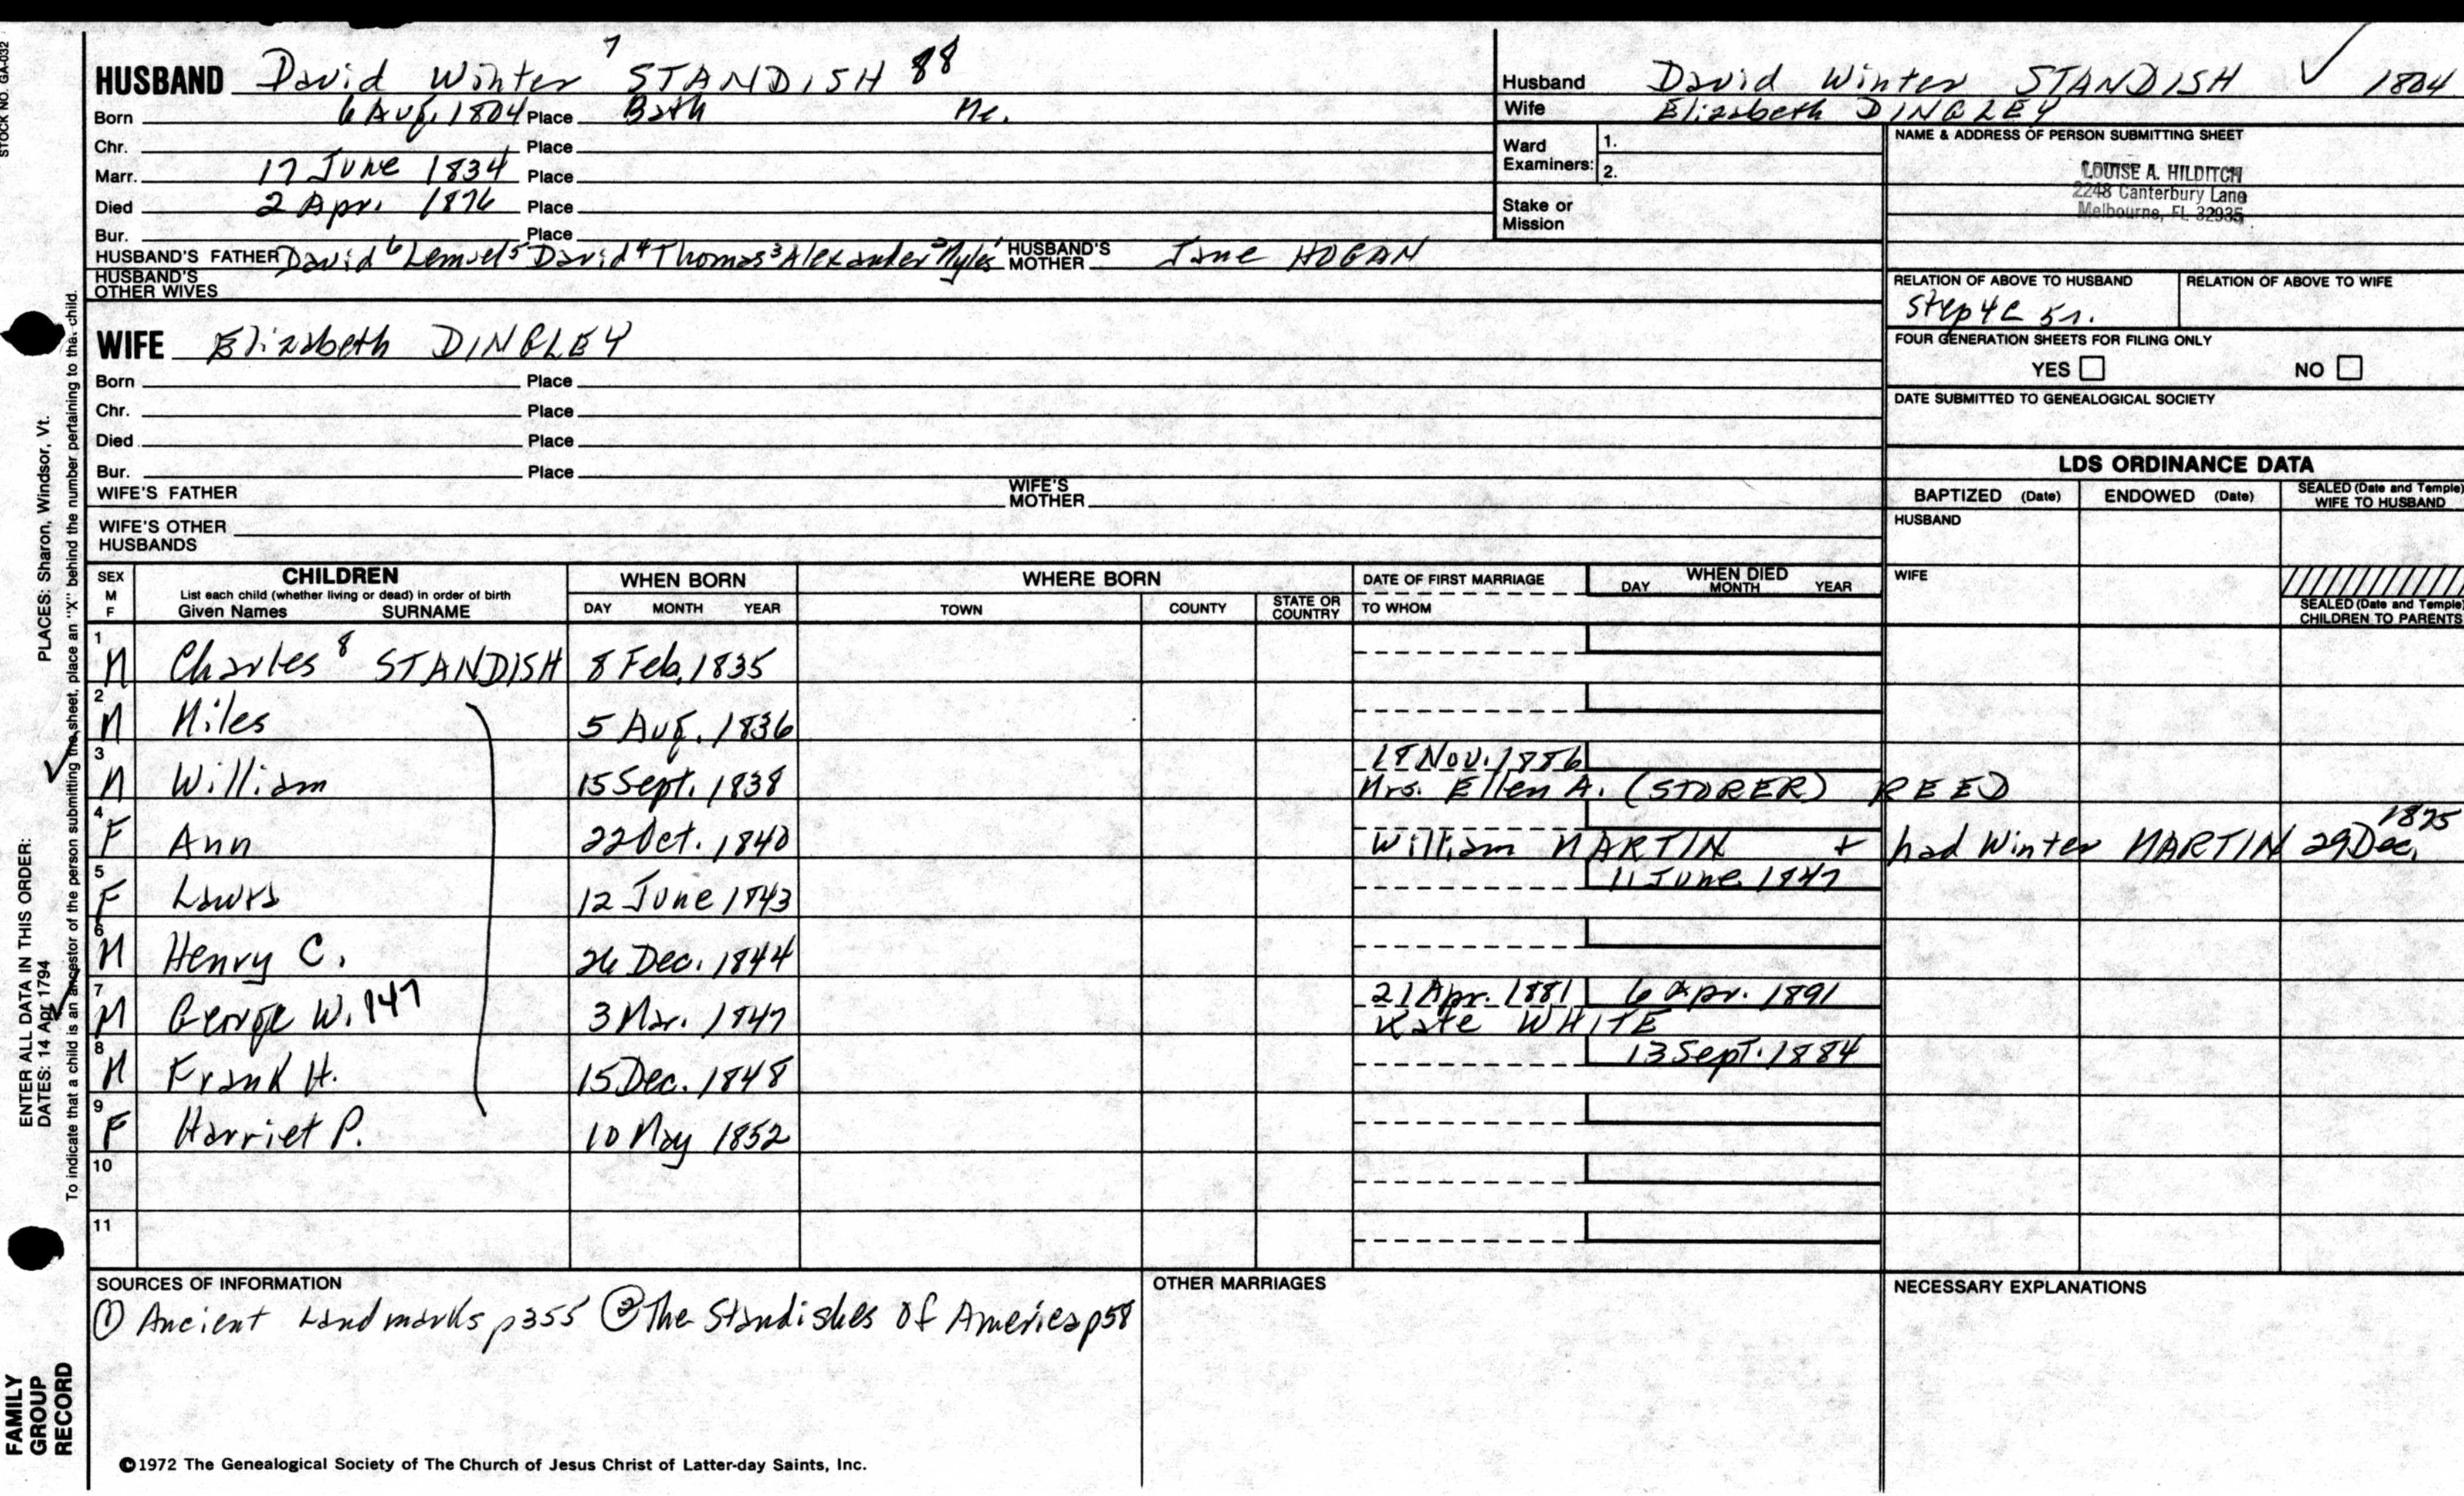 STOCK NO. GA-032
HUSBAND David Winter 7 STANDISH 88
Born 6 Aug. 1804 Place Bath Me.
Chr. Place
Marr. 17 June 1834 Place
Died 2 Apr. 1876 Place
Bur. Place
HUSBAND'S FATHER David 6 Lemuel 5 David 4 Thomas 3 Alexander 2 Myles 1 HUSBAND'S MOTHER Jane HOGAN
HUSBAND'S OTHER WIVES
Husband David Winter STANDISH ✓ 1804
Wife Elizabeth DINGLEY
Ward Examiners: 1.
2.
Stake or Mission
NAME & ADDRESS OF PERSON SUBMITTING SHEET
LOUISE A. HILDITCH
2248 Canterbury Lane
Melbourne, FL 32935
RELATION OF ABOVE TO HUSBAND RELATION OF ABOVE TO WIFE
step 4c 5r.
FOUR GENERATION SHEETS FOR FILING ONLY
YES NO
DATE SUBMITTED TO GENEALOGICAL SOCIETY
WIFE Elizabeth DINGLEY
Born Place
Chr. Place
Died Place
Bur. Place
WIFE'S FATHER WIFE'S MOTHER
WIFE'S OTHER HUSBANDS
LDS ORDINANCE DATA
BAPTIZED (Date) ENDOWED (Date) SEALED (Date and Temple) WIFE TO HUSBAND
HUSBAND
WIFE
SEALED (Date and Temple) CHILDREN TO PARENTS
SEX M F CHILDREN WHEN BORN WHERE BORN DATE OF FIRST MARRIAGE WHEN DIED
List each child (whether living or dead) in order of birth
Given Names SURNAME DAY MONTH YEAR TOWN COUNTY STATE OR COUNTRY TO WHOM DAY MONTH YEAR
1 M Charles 8 STANDISH 8 Feb. 1835
2 M Miles 5 Aug. 1836
3 M William 15 Sept. 1838 18 Nov. 1886
Mrs. Ellen A. (STORER) REED
4 F Ann 22 Oct. 1840 William MARTIN + had Winter MARTIN 29 Dec. 1875
5 F Laura 12 June 1843 11 June 1847
6 M Henry C. 26 Dec. 1844
7 M George W. 147 3 Mar. 1847 21 Apr. 1881 6 Apr. 1891
Kate WHITE
8 M Frank H. 15 Dec. 1848 13 Sept. 1884
9 F Harriet P. 10 May 1852
10
11
SOURCES OF INFORMATION
① Ancient Landmarks p355 ② The Standishes of America p58
OTHER MARRIAGES
NECESSARY EXPLANATIONS
©1972 The Genealogical Society of The Church of Jesus Christ of Latter-day Saints, Inc.
ENTER ALL DATA IN THIS ORDER:
DATES: 14 Apr 1794
PLACES: Sharon, Windsor, Vt.
To indicate that a child is an ancestor of the person submitting the sheet, place an "X" behind the number pertaining to that child.
FAMILY
GROUP
RECORD